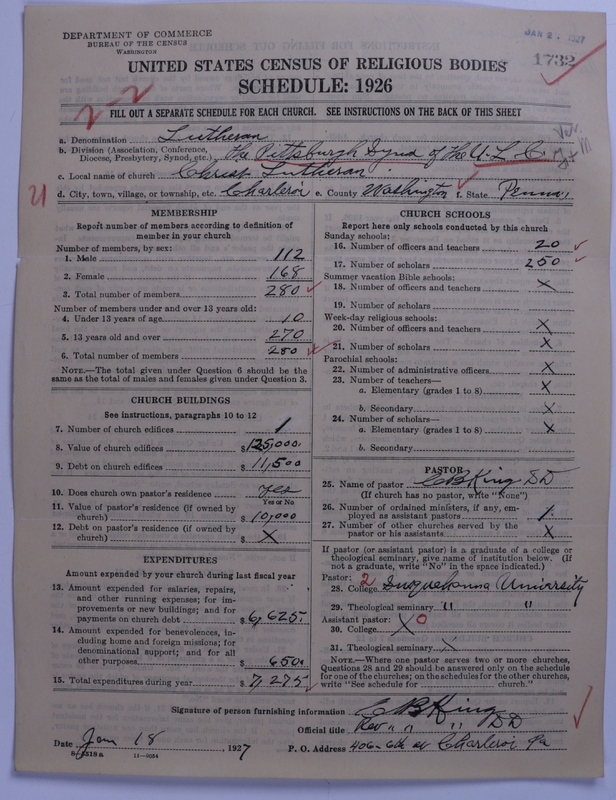 DEPARTMENT OF COMMERCE
BUREAU OF THE CENSUS
WASHINGTON
JAN 2 1927
1732
UNITED STATES CENSUS OF RELIGIOUS BODIES
SCHEDULE: 1926
2-2
FILL OUT A SEPARATE SCHEDULE FOR EACH CHURCH. SEE INSTRUCTIONS ON THE BACK OF THIS SHEET
a. Denomination Lutheran
b. Division (Association, Conference, Diocese, Presbytery, Synod, etc.) The Pittsburgh Synod of the U. L. C.
c. Local name of church Christ Lutheran
d. City, town, village, or township, etc. Charleroi e. County Washington f. State Penna.
MEMBERSHIP
Report number of members according to definition of
member in your church
Number of members, by sex:
1. Male 112
2. Female 168
3. Total number of members 280
Number of members under and over 13 years old:
4. Under 13 years of age 10
5. 13 years old and over 270
6. Total number of members 280
NOTE.—The total given under Question 6 should be
same as the total of males and females given under Question 3.
CHURCH BUILDINGS
See instructions, paragraphs 10 to 12
7. Number of church edifices 1
8. Value of church edifices $125,000.
9. Debt on church edifices $11,500
10. Does church own pastor's residence yes
Yes or No
11. Value of pastor's residence (if owned by
church) $10,000
12. Debt on pastor's residence (if owned by
church) $ X
EXPENDITURES
Amount expended by your church during last fiscal year
13. Amount expended for salaries, repairs,
and other running expenses; for im-
provements or new buildings; and for
payments on church debt $6,625.
14. Amount expended for benevolences, in-
cluding home and foreign missions; for
denominational support; and for all
other purposes $650.
15. Total expenditures during year $7,275
CHURCH SCHOOLS
Report here only schools conducted by this church
Sunday schools:
16. Number of officers and teachers 20
17. Number of scholars 250
Summer vacation Bible schools:
18. Number of officers and teachers X
19. Number of scholars
Week-day religious schools:
20. Number of officers and teachers X
21. Number of scholars X
Parochial schools:
22. Number of administrative officers X
23. Number of teachers—
a. Elementary (grades 1 to 8) X
b. Secondary X
24. Number of scholars—
a. Elementary (grades 1 to 8) X
b. Secondary
PASTOR
25. Name of pastor C B King DD
(If church has no pastor, write "None")
26. Number of ordained ministers, if any, em-
ployed as assistant pastors 1.
27. Number of other churches served by the
pastor or his assistants X
If pastor (or assistant pastor) is a graduate of a college or
theological seminary, give name of institution below. (If
not a graduate, write "No" in the space indicated.)
Pastor: 2
28. College Susquehanna University
29. Theological seminary " "
Assistant pastor: 0
30. College X
31. Theological seminary X
NOTE.—Where one pastor serves two or more churches,
Questions 28 and 29 should be answered only on the schedule
for one of the churches; on the schedules for the other churches,
write "See schedule for church."
Signature of person furnishing information C B King
Official title Rev " " " DD
Date Jan 18, 1927 P. O. Address 406-6th av Charleroi Pa
8-5318a 11—0034